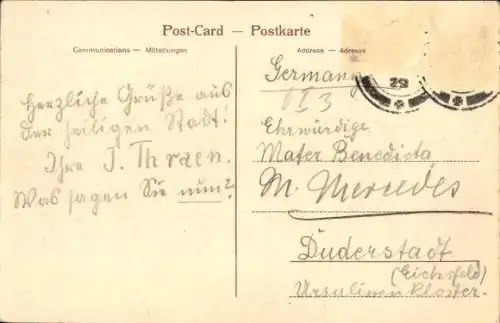 Post-Card — Postkarte
Communications — Mitteilungen
Address — Adresse
Herzliche Grüße aus
der heiligen Stadt!
Ihre J. Thraen.
Was sagen Sie nun?
Germany
Ehrwürdige
Mater Benedicta
M. Mercedes
Duderstadt
(Eichsfeld)
Ursulinen Kloster.